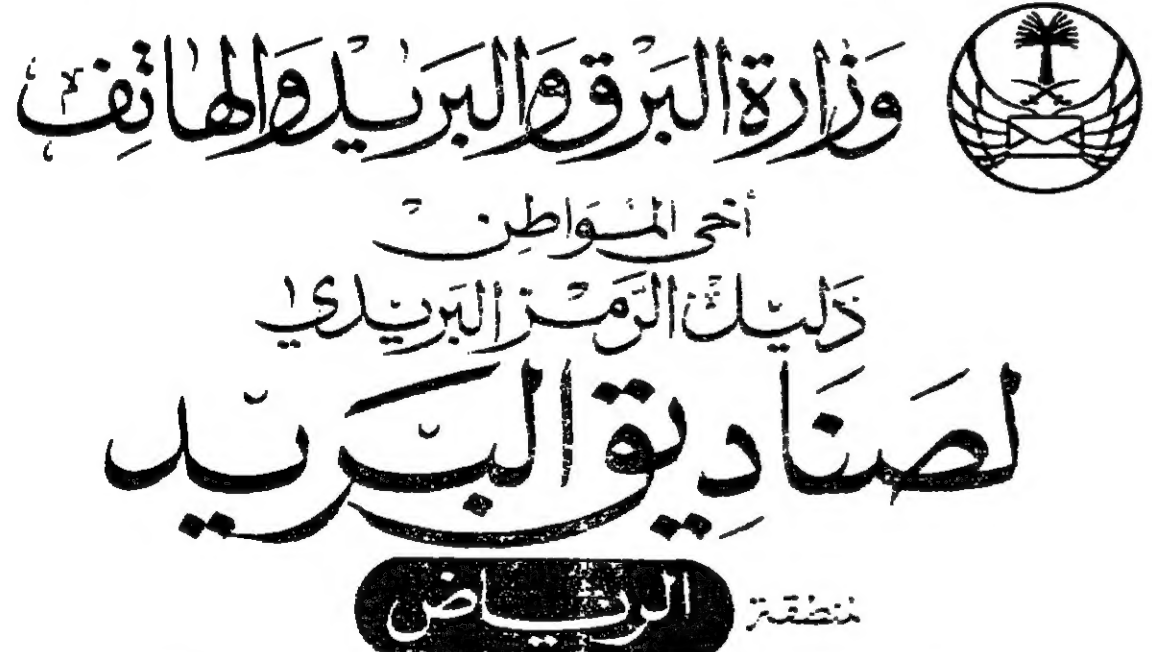 وزارة البرق والبريد والهاتف
أخي المواطن
دليل الرمز البريدي
لصناديق البريد
منطقة الرياض